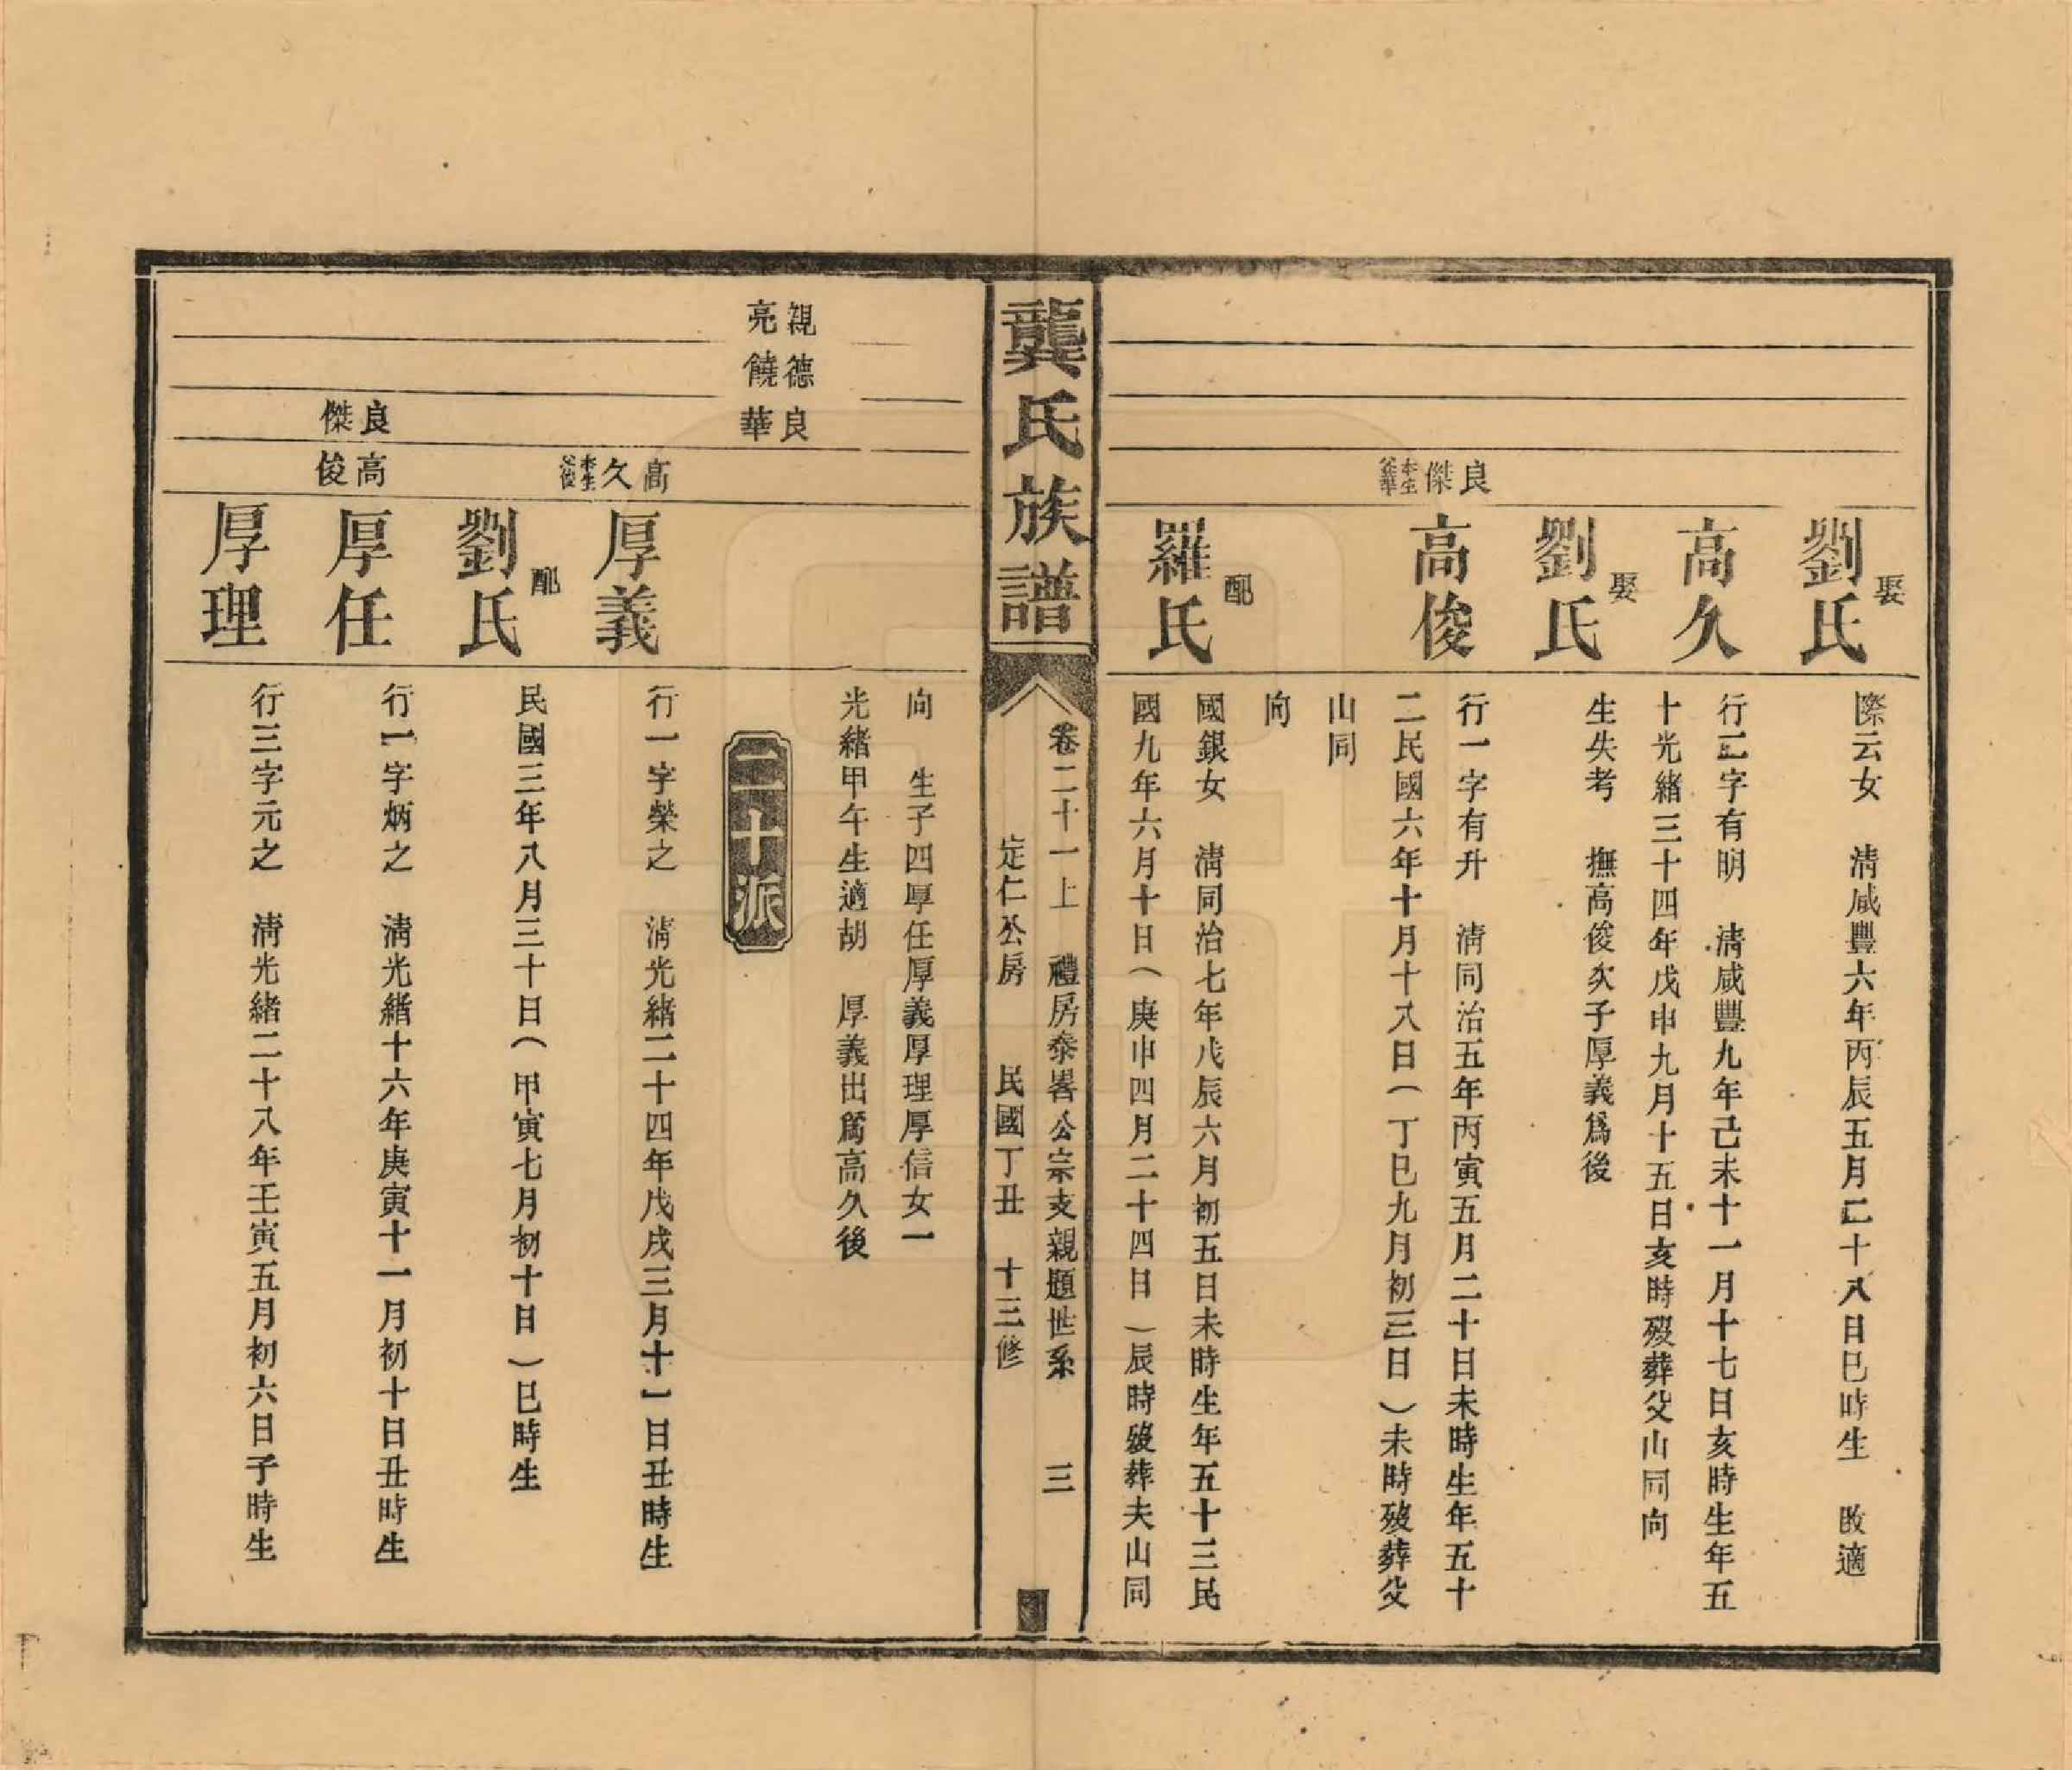 娶
劉氏
際云女　清咸豐六年丙辰五月二十八日巳時生　改適
高久
行二字有明　清咸豐九年己未十一月十七日亥時生年五
十光緒三十四年戊申九月十五日亥時歿葬父山同向
娶
劉氏
生失考　撫高俊次子厚義爲後
良傑本生父華
高俊
行一字有升　清同治五年丙寅五月二十日未時生年五十
二民國六年十月十八日（丁巳九月初三日）未時歿葬父
山同
向
配
羅氏
國銀女　清同治七年戊辰六月初五日未時生年五十三民
國九年六月十日（庚申四月二十四日）辰時歿葬夫山同
龔氏族譜
卷二十一上　禮房泰畧公宗支親題世系　三
定仁公房　民國丁丑　十三修
向　生子四厚任厚義厚理厚信女一
光緒甲午生適胡　厚義出爲高久後
親亮
德饒
良華
二十派
高久本生父俊
厚義
行一字榮之　清光緒二十四年戊戌三月十一日丑時生
配
劉氏
民國三年八月三十日（甲寅七月初十日）巳時生
良傑
高俊
厚任
行一字炳之　清光緒十六年庚寅十一月初十日丑時生
厚理
行三字元之　清光緒二十八年壬寅五月初六日子時生